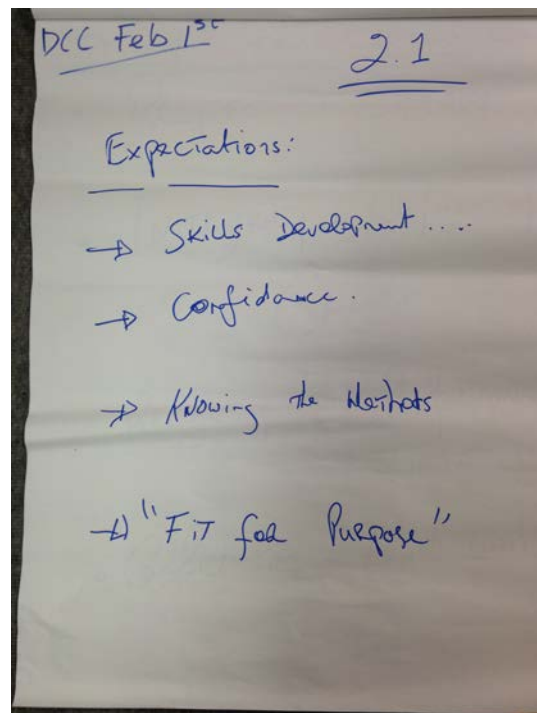 DCC Feb 1st
2.1
Expectations:
→ Skills Development....
→ Confidance.
→ Knowing the Methods
→ "Fit for Purpose"